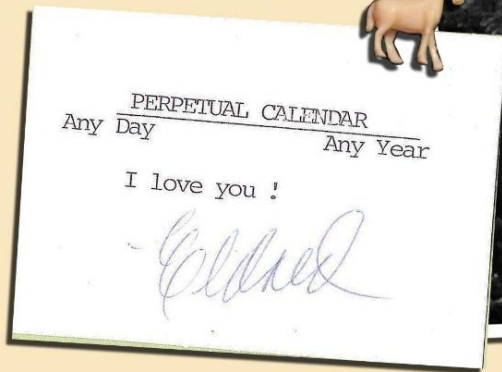 PERPETUAL CALENDAR
Any Day Any Year
I love you !
Eldred